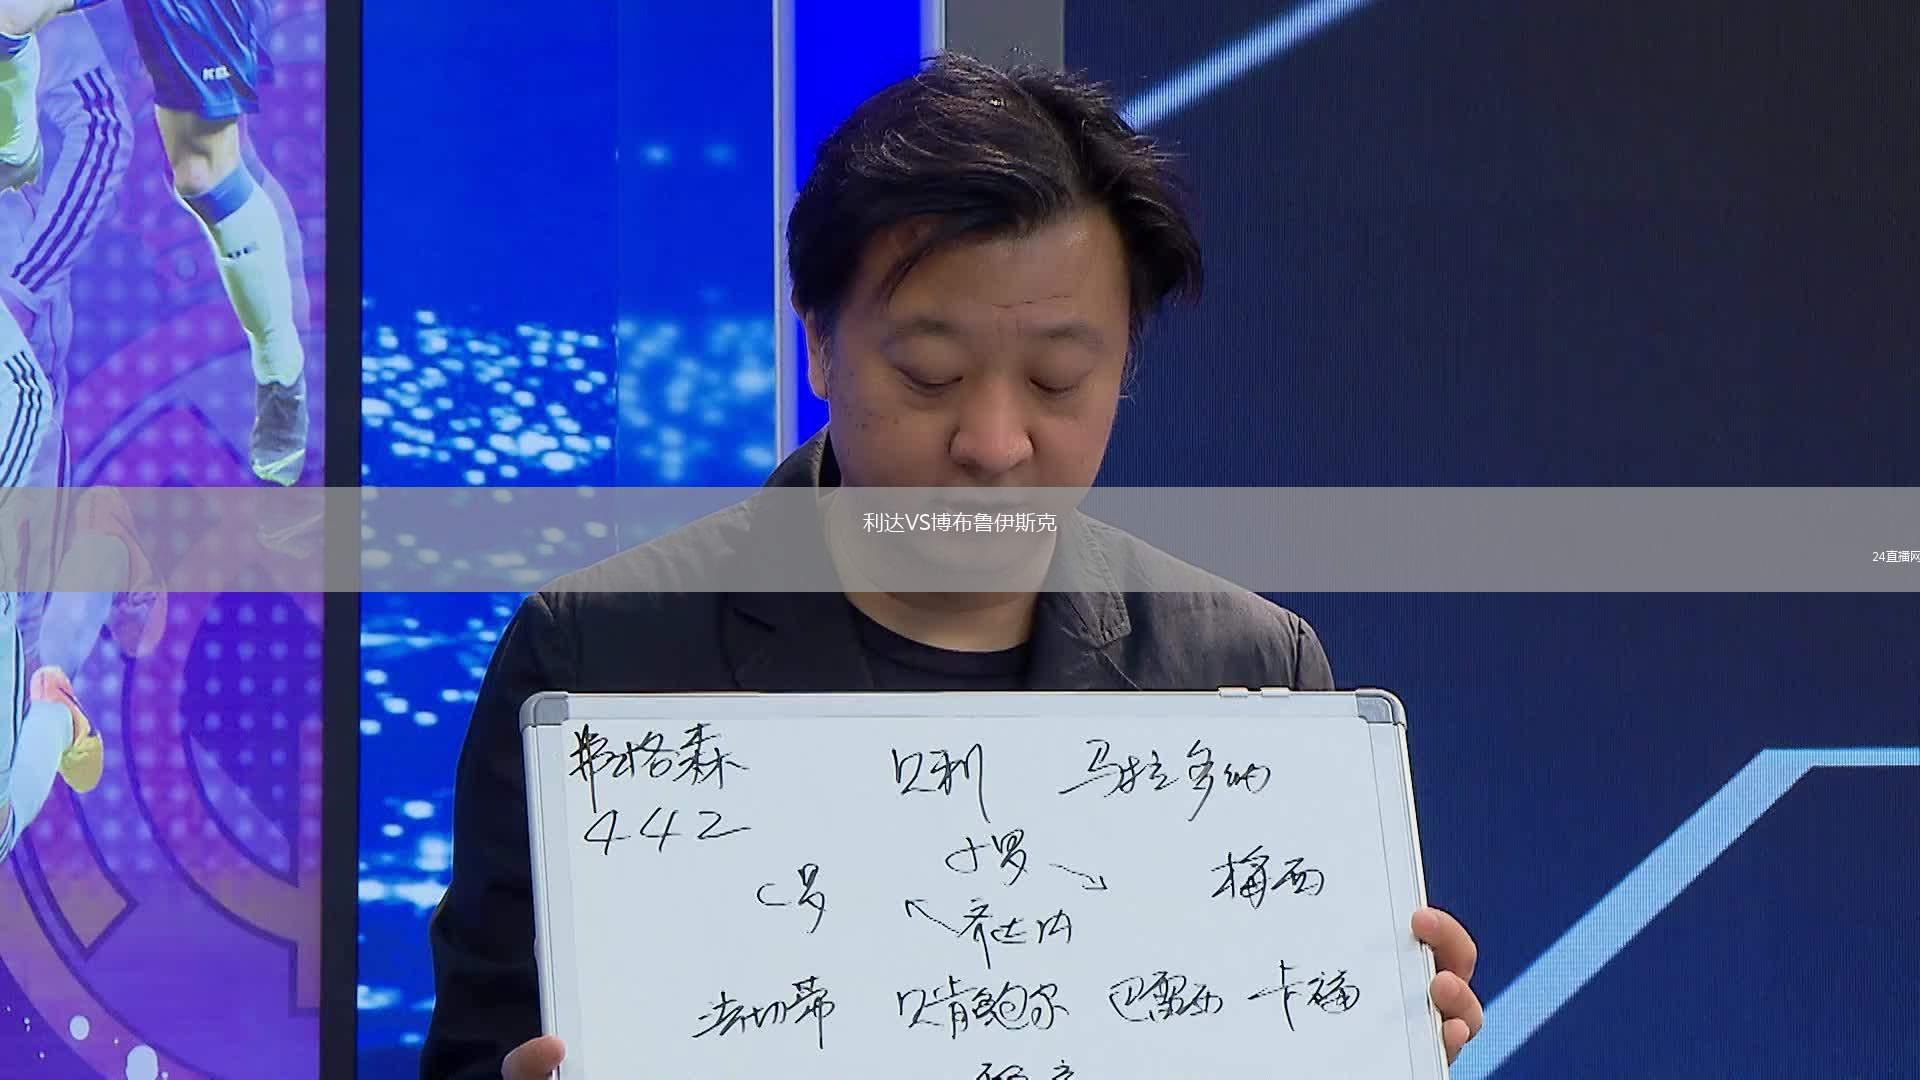 利达VS博布鲁伊斯克
24直播网
弗格森 贝利 马拉多纳
442
小罗
C罗 梅西
齐达内
法切蒂 贝肯鲍尔 巴雷西 卡福